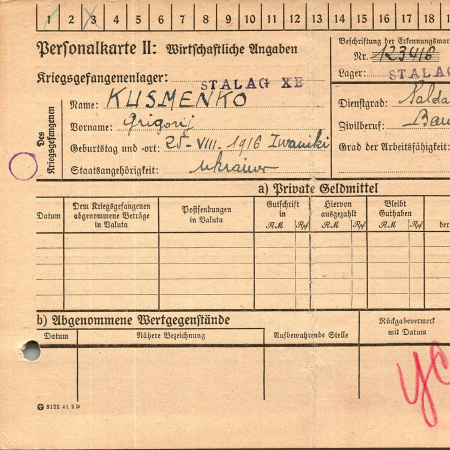 1 2 3 4 5 6 7 8 9 10 11 12 13 14 15 16 17 18
Personalkarte II: Wirtschaftliche Angaben
Beschriftung der Erkennungsmar
Nr. 123416
Kriegsgefangenenlager: STALAG XB
Lager: STALAG
Des Kriegsgefangenen
Name: KUSMENKO
Dienstgrad: Solda
Vorname: Grigorij
Zivilberuf: Bau
Geburtstag und -ort: 25-VIII. 1916 Iwaniki
Grad der Arbeitsfähigkeit:
Staatsangehörigkeit: Ukrainer
a) Private Geldmittel
Datum
Dem Kriegsgefangenen abgenommene Beträge in Valuta
Postsendungen in Valuta
Gutschrift in
RM Rpf
Hiervon ausgezahlt
RM Rpf
Bleibt Guthaben
RM Rpf
der
b) Abgenommene Wertgegenstände
Datum
Nähere Bezeichnung
Aufbewahrende Stelle
Rückgabevermerk mit Datum
5122 41 2 D